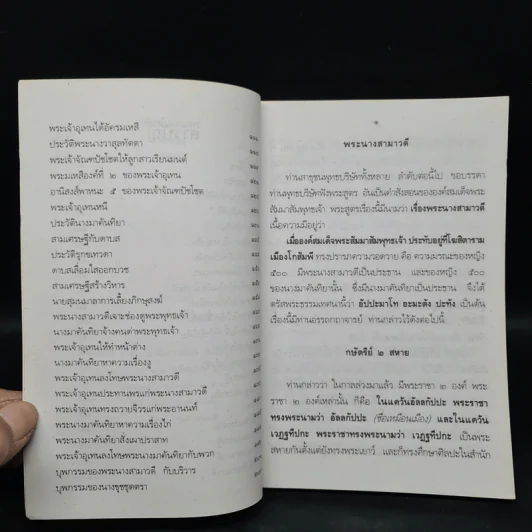 พระเจ้าอุเทนได้อัครมเหสี
ประวัติพระนางวาสุลทัตตา
พระเจ้าจัณฑปัชโชตให้ลูกสาวเรียนมนต์
พระมเหสีองค์ที่ ๒ ของพระเจ้าอุเทน
อานิสงส์พาหนะ ๕ ของพระเจ้าจัณฑปัชโชต
พระเจ้าอุเทนหนี
ประวัตินางมาคันทิยา
สามเศรษฐีกับดาบส
ประวัติรุกขเทวดา
ดาบสเลื่อมใสออกบวช
สามเศรษฐีสร้างวิหาร
นายสุมนมาลาการเลี้ยงภิกษุสงฆ์
พระนางสามาวดีเจาะช่องดูพระพุทธเจ้า
นางมาคันทิยาจ้างคนด่าพระพุทธเจ้า
พระเจ้าอุเทนให้ทำหน้าต่าง
นางมาคันทิยาหาความเรื่องงู
พระเจ้าอุเทนลงโทษพระนางสามาวดี
พระเจ้าอุเทนประทานพรแก่พระนางสามาวดี
พระเจ้าอุเทนทรงถวายจีวรแก่พระอานนท์
พระนางมาคันทิยาหาความเรื่องไก่
พระนางมาคันทิยาสั่งเผาปราสาท
พระเจ้าอุเทนลงโทษพระนางมาคันทิยากับพวก
บุพกรรมของพระนางสามาวดี กับบริวาร
บุพกรรมของนางขุชชุตตรา
พระนางสามาวดี
ท่านสาธุชนพุทธบริษัททั้งหลาย ลำดับต่อนี้ไป ขอบรรดา
ท่านพุทธบริษัทฟังพระสูตร อันเป็นคำสั่งสอนขององค์สมเด็จพระ
สัมมาสัมพุทธเจ้า พระสูตรเรื่องนี้มีนามว่า เรื่องพระนางสามาวดี
เนื้อความมีอยู่ว่า
เมื่อองค์สมเด็จพระสัมมาสัมพุทธเจ้า ประทับอยู่ที่โฆสิตาราม
เมืองโกสัมพี ทรงปรารภความวอดวาย คือ ความมรณะของหญิง
๕๐๐ มีพระนางสามาวดีเป็นประธาน และของหญิง ๕๐๐
ของนางมาคันทิยานั้น ซึ่งมีนางมาคันทิยาเป็นประธาน จึงได้
ตรัสพระธรรมเทศนานี้ว่า อัปปะมาโท อะมะตัง ปะทัง เป็นต้น
เรื่องนี้มีท่านอรรถกถาจารย์ ท่านกล่าวไว้ดังต่อไปนี้
กษัตริย์ ๒ สหาย
ท่านกล่าวว่า ในกาลล่วงมาแล้ว มีพระราชา ๒ องค์ พระ
ราชา ๒ องค์เหล่านั้น ก็คือ ในแคว้นอัลลกัปปะ พระราชา
ทรงพระนามว่า อัลลกัปปะ (ชื่อเหมือนเมือง) และในแคว้น
เวฏฐทีปกะ พระราชาทรงพระนามว่า เวฏฐทีปกะ เป็นพระ
สหายกันตั้งแต่ยังทรงพระเยาว์ และก็ทรงศึกษาศิลปะในสำนัก